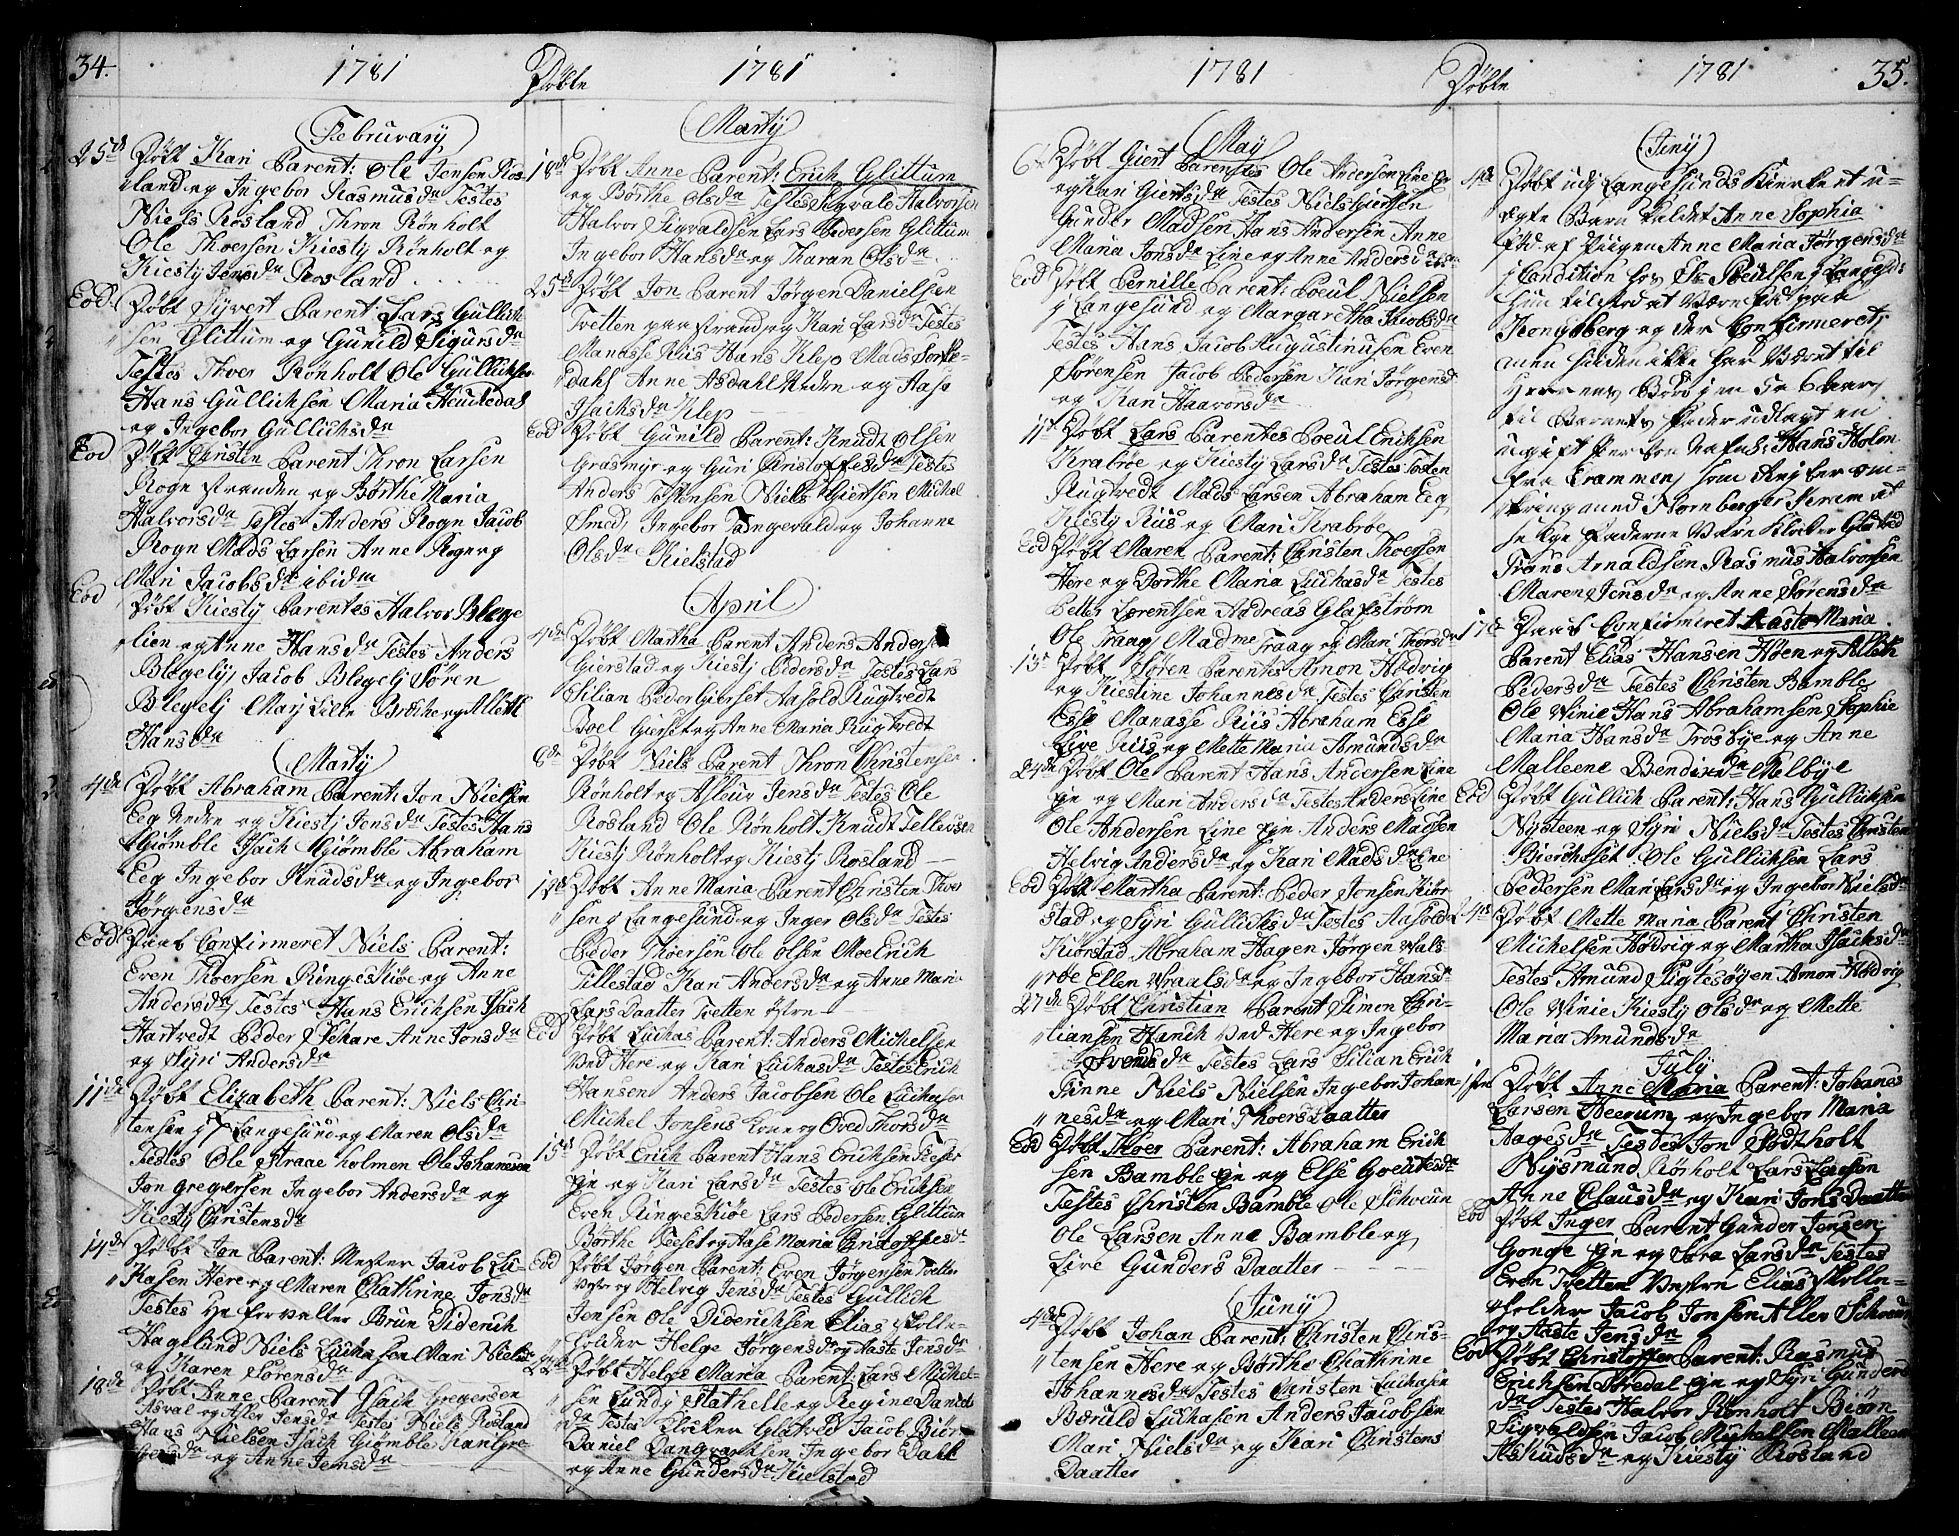 34.
1781
Döbte
1781
Februarij
25de Döbt Kari Parent: Ole Jensen Ros-
land og Ingebor Rasmusdr Testes
Niels Rosland Thron Rönholt
Ole Thoersen Kiestj Rönholt og
Kiestj Jensdr Rosland
Eod Döbt Syvert Parent Lars Gullich
sen Glittum og Gunild Sigursdr
Testes Thoer Rönholt Ole Gullichsen
Hans Gullichsen Maria Heukedal
og Ingebor Gullichsdr
Eod Döbt Christen Parent Thron Larsen
Rogn stranden og Börthe Maria
Halvorsdr Testes Anders Rogn Jacob
Rogn Mads Larsen Anne Rogn og
Mari Jacobsdr ibidm
Eod Döbt Kiestj Parentes Halvor Blege
lien og Anne Hansdr Testes Anders
Blegelj, Jacob Blegelj Sören
Blegelj Marj Lille og Alleth
Hansdr
Martij
4de Döbt Abraham Parent: Jon Nielsen
Eeg Nedre og Kiestj Jensdr Testes Hans
Giömble Isach Giömble Abraham
Eeg Ingebor Knudsdr og Ingebor
Jörgensdr
Eod Daab Confirmeret Niels Parent:
Even Thoersen Ringeskiöe og Anne
Andersdr Testes Hans Erichsen Isach
Hartvedt Peder Anne Jonsdr
og Syri Andersdr
11de Döbt Elizabeth Parent: Niels Chri-
tensen i Langesund og Maren Olsdr
Testes Ole Straaeholmen Ole Johannsen
Jon Gregersen Ingebor Andersdr og
Kiestj Christensdr
14de Döbt Jon Parent: Mester Jacob Lu-
kasen Here og Maren Chathrine Jonsdr
Testes Hr forvalter Brun Diderich
Hagelund Niels Luchasen Mari Nielsdr
og Karen Sörensdr
18de Döbt Anne Parent Isach Gregersen
Asval og Aslou Jensdr Testes Niels Rosland
Hans Nielsen Isach Giömble Kari Gre-
gersdr og Anne Jensdr
Martij
18de Döbt Anne Parent: Erich Glittum
og Börthe Olsdr Testes Sigvald Halvorsen
Halvor Sigvaldsen Lars Pedersen Glittum
Ingebor Hansdr og Tharan Olsdr
25de Döbt Jon Parent Jörgen Danielsen
Tvetten paa strand og Kari Larsdr Testes
Manasse Riis Hans Klep Mads Sortte-
dahl Anne Asdahl Neden og Aase
Isachsdr Klep
Eod Döbt Gunild Parent: Knudt Olsen
Grasmyr og Guri Christoffesdr Testes
Anders Tostensen Niels Giertsen Michel
Smed, Ingebor Tangevald og Johanne
Olsdr Kielstad
April
4de Döbt Martha Parent Anders Andersen
Gierstad og Kiestj Pedersdr Testes Lars
Silian Peder Gierset Aasold Rugtvedt
Boel Gierset og Anne Maria Rugtvedt
8de Döbt Niels Parent Thron Christensen
Rönholt og Aslour Jensdr Testes Ole
Rosland Ole Rönholt Knudt Tellevsen
Kiestj Rönholt og Kiestj Rosland
12de Döbt Anne Maria Parent Christen Thoer
sen i Langesund og Inger Olsdr Testes
Peder Thoersen Ole Olsen Moe Erich
Tillestad Kari Andersdr og Anne Maria
Lars Daatter Tvetten östre
Eod Döbt Luchas Parent: Anders Michelsen
Ved Here og Kari Luchasdr Testes Erich
Hansen Anders Jacobsen Ole Luchasen
Michel Jonsens Kone og Oved Thorsdr
15de Döbt Erich Parent Hans Erichsen Feeset
Eje og Kari Larsdr Testes Ole Erichsen
Even Ringeskiöe Lars Pedersen Glittum
Börthe Feeset og Aase Maria Christoffesdr
Eod Döbt Jörgen Parent: Even Jörgensen Tvetten
Vestre og Helvig Jensdr Testes Gullich
Jensen Ole Diderichsen Elias Skolle-
folder Helge Jörgensdr og Aaste Jensdr
22de Döbt Helge Maria Parent: Lars Michel-
sen Lundj Stathelle og Regine Daniels
dr Testes Klocker Glatved Jacob Biör
Daniel Danqvertsen Ingebor Dahl
og Anne Gundersdr Kielstad
1781
Döbte
1781
35.
May
6te Döbt Giert Parentes Ole Andersen Line Eje
og Kari Giertsdr Testes Niels Giertsen
Gunder Madsen Hans Andersen Anne
Maria Jonsdr Line og Anne Andersdr
Eod Döbt Pernille Parent: Poeul Nielsen
i Langesund og Margaretha Jacobsdr
Testes Hans Jacob Augustinusen Even
Sörensen Jacob Pedersen Kari Jörgensd
og Kari Haavorsdr
11te Döbt Lars Parentes Poeul Erichsen
Krabröe og Kiestj Larsdr Testes Tosten
Rugtvedt Mads Larsen Abraham Eeg
Kiestj Riis og Mari Krabröe
Eod Döbt Maren Parent: Christen Thoersen
Here og Dorthe Maria Luchasdr Testes
Petter Lorentsen Andreas Glafström
Ole Traag Madme Traag og Mari Thorsdr
13de Döbt Sören Parentes Amon Hödvig
og Kiestine Johannesdr Testes Christen
Esse Manasse Riis Abraham Esse
Live Riis og Mette Maria Amundsdr
24de Döbt Ole Parent Hans Andersen Line
Eje og Mari Andersdr Testes Anders Line
Ole Andersen Line Eje Anders Madsen
Helvig Andersdr og Kari Madsdr Line
Eod Döbt Martha Parent: Peder Jonsen Kiör
stad og Syri Gullichsdr Testes Aasold
Kiörstad Abraham Hagen Jörgen Vals
Ellen Vraalsdr og Ingebor Hansdr
27de Döbt Christian Parent Simon Chri-
tiansen Hanch Ved Here og Ingebor
Svensdr Testes Lars Silian Erich
Finne Niels Nielsen Ingebor Johan
nesdr og Mari Thoers Daatter
Eod Döbt Thoer Parent: Abraham Erich
sen Bamble Eje og Else Goeutesdr
Testes Christen Bamble Ole Schoeun
Ole Larsen Anne Bamble og
Live Gunders Daatter
Junij
4de Döbt Johan Parent: Christen Chris-
tensen Here og Börthe Chathrine
Johannesdr Testes Christen Luchasen
Bæruld Luchasen Anders Jacobsen
Mari Nielsdr og Kari Christens
Daatter
Junij
4de Döbt udj Langesunds Kierke et u-
egte Barn kaldet Anne Sophia
föd af Piigen Anne Maria Jörgensdr
i Condition hos Ek Poeulsen i Langesd
hun tilstod at være föd paa
Kongsberg og der Confirmeret
men siden ikke har Været til
Herrens Bord j en 5 a 6 Aar
til Barnets Fader udlagt en
ugift Person Nafnl: Hans Holm
fra Crammen, som rejser om-
kring med Nornberger Kram at
sælge Fadderne Vare Klocker Glatved
Frans Arnaldsen Rasmus Halvorsen
Maren Jensdr og Anne Sörensdr
17de Daab Confirmeret Aaste Maria
Parent Elias Hansen Höen og Alleth
Pedersdr Testes Christen Bamble
Ole Vinie Hans Abrahamsen Sophie
Maria Hansdr Trosbye og Anne
Malleene Bendixdr Melbye
Eod Döbt Gullich Parent: Hans Gullichsen
Nysteen og Syri Nielsdr Testes Christen
Bierchoset Ole Gullichsen Lars
Pedersen Mari Larsdr og Ingebor Nielsdr
24de Döbt Mette Maria Parent Christen
Michelsen Hödvig og Martha Isachsdr
Testes Amund Siglesöyen Amon Hödvig
Ole Vinie Kiestj Olsdr og Mette
Maria Amundsdr
July
1ste Döbt Anne Maria Parent: Johanes
Larsen Heerum og Ingebor Maria
Aagesdr Testes Jon Stodtholt
Nysmund Rörholt Lars Larsen
Anne Clausdr og Kari Jons Daatter
Eod Döbt Inger Parent Gunder Jensen
Gonge Eje og Sara Larsdr Testes
Even Tvetten Vestre Elias Skolle-
folder Jacob Jonsen Aller Schoeun
og Aaste Jensdr
Eod Döbt Christoffer Parent: Rasmus
Erichsen Aredal Eje og Syri Gunders
dr Testes Halvor Rönholt Biörn
Sigvaldsen Jacob Michelsen Malleen
Askudsdr og Kiestj Rosland